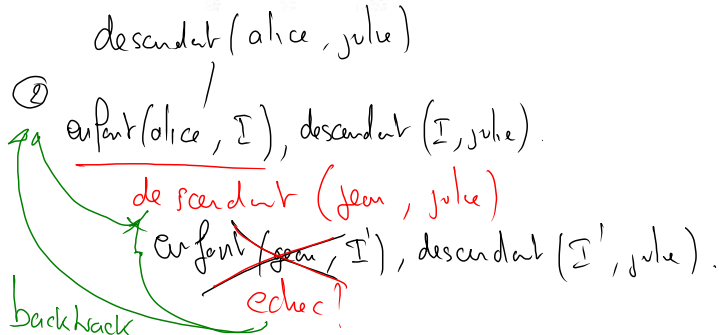 descendant(alice, julie)
②
enfant(alice, I), descendant(I, julie).
descendant(jean, julie)
enfant(jean, I'), descendant(I', julie).
echec!
backtrack